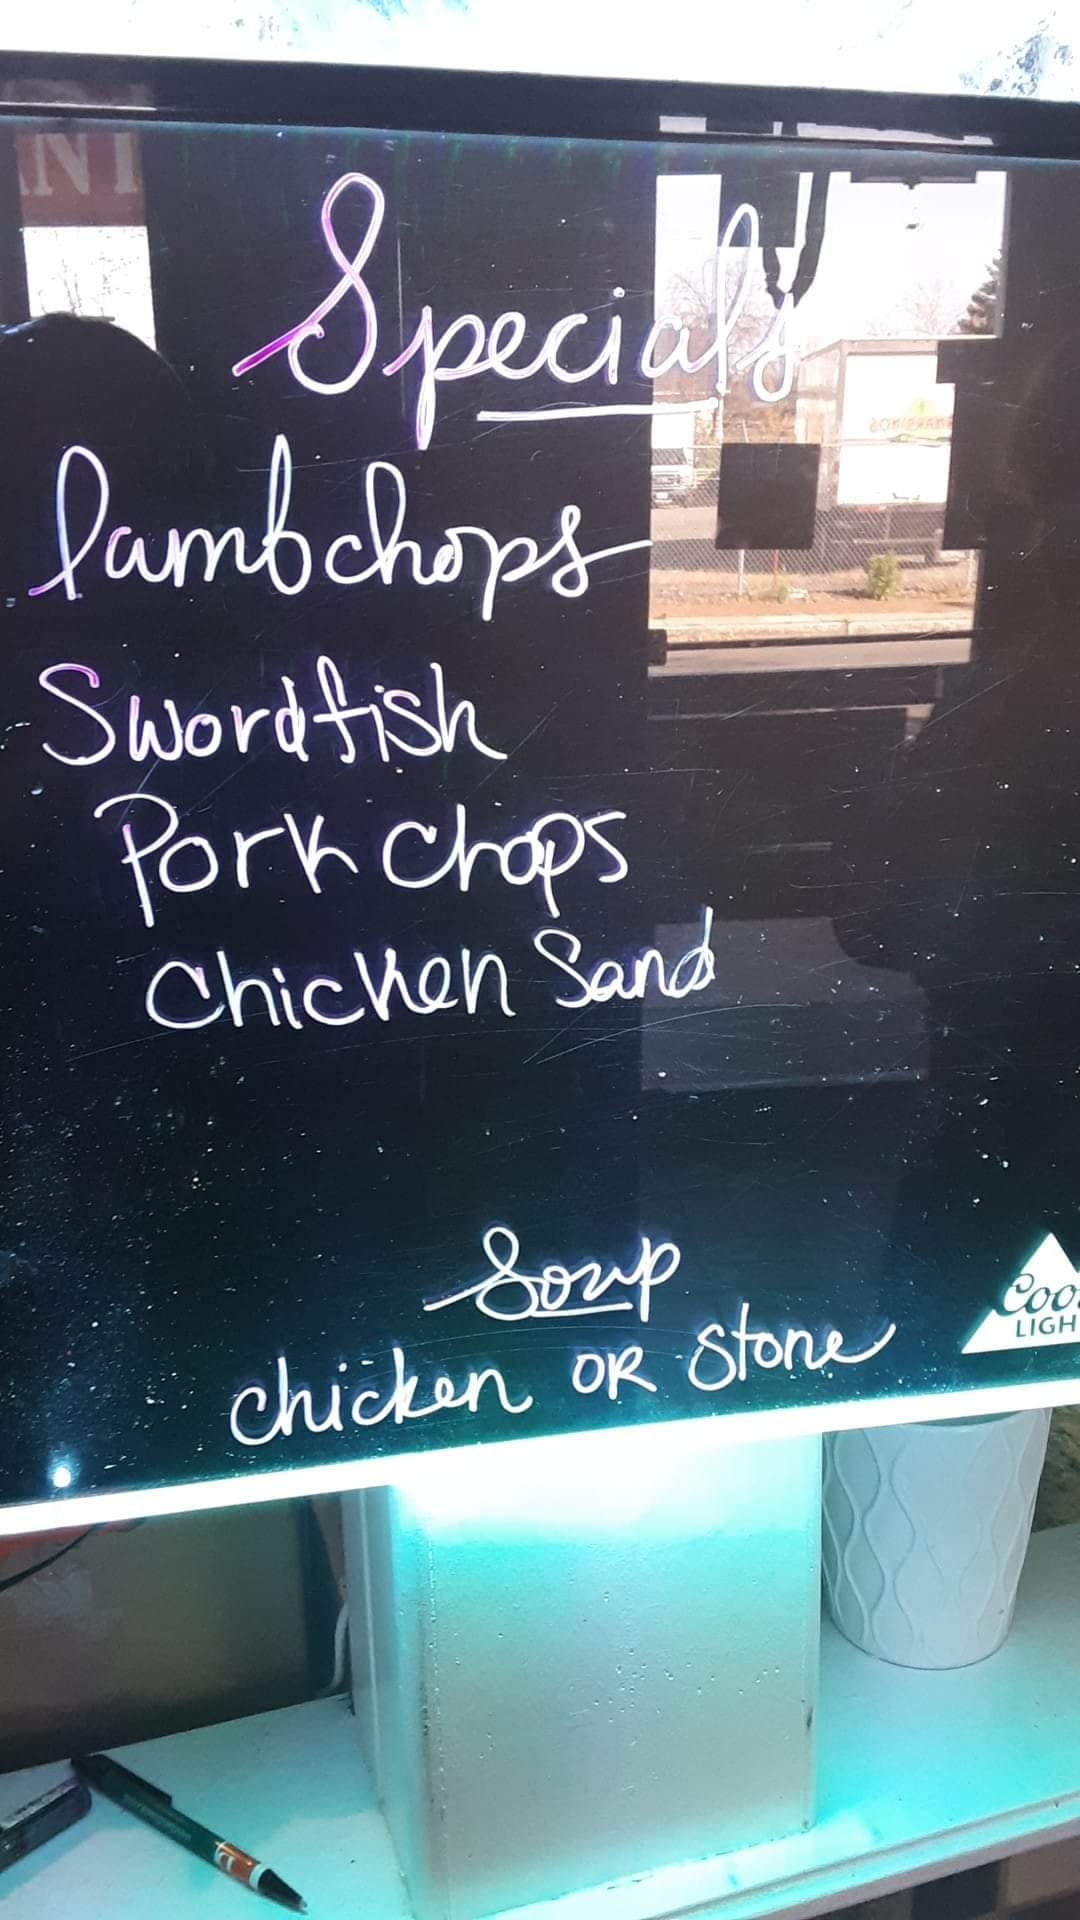 Specials
lambchops
Swordfish
Pork Chops
Chicken Sand
Soup
chicken OR Stone
LIGH